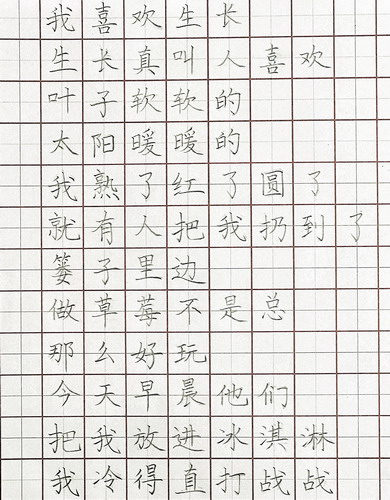 我喜欢生长
生长真叫人喜欢
叶子软软的
太阳暖暖的
我熟了红了圆了
就有人把我扔到了
篓子里边
做草莓不是总
那么好玩
今天早晨他们
把我放进冰淇淋
我冷得直打战战